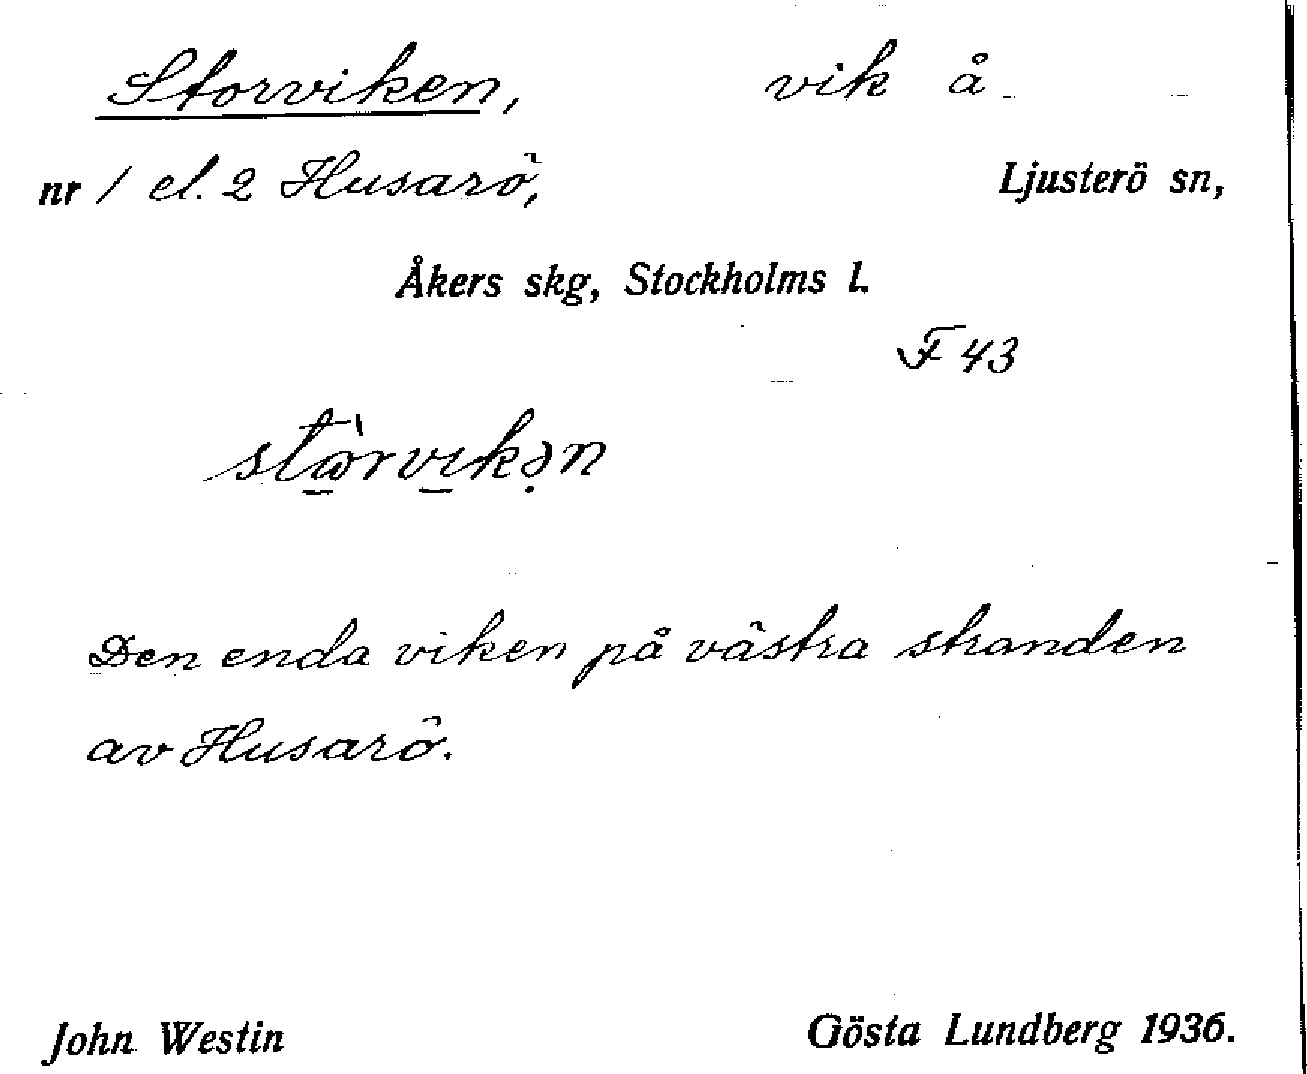 Storviken, vik å
nr 1 el. 2 Husarö, Ljusterö sn,
Åkers skg, Stockholms l.
F 43
Den enda viken på västra stranden
av Husarö.
John Westin Gösta Lundberg 1936.